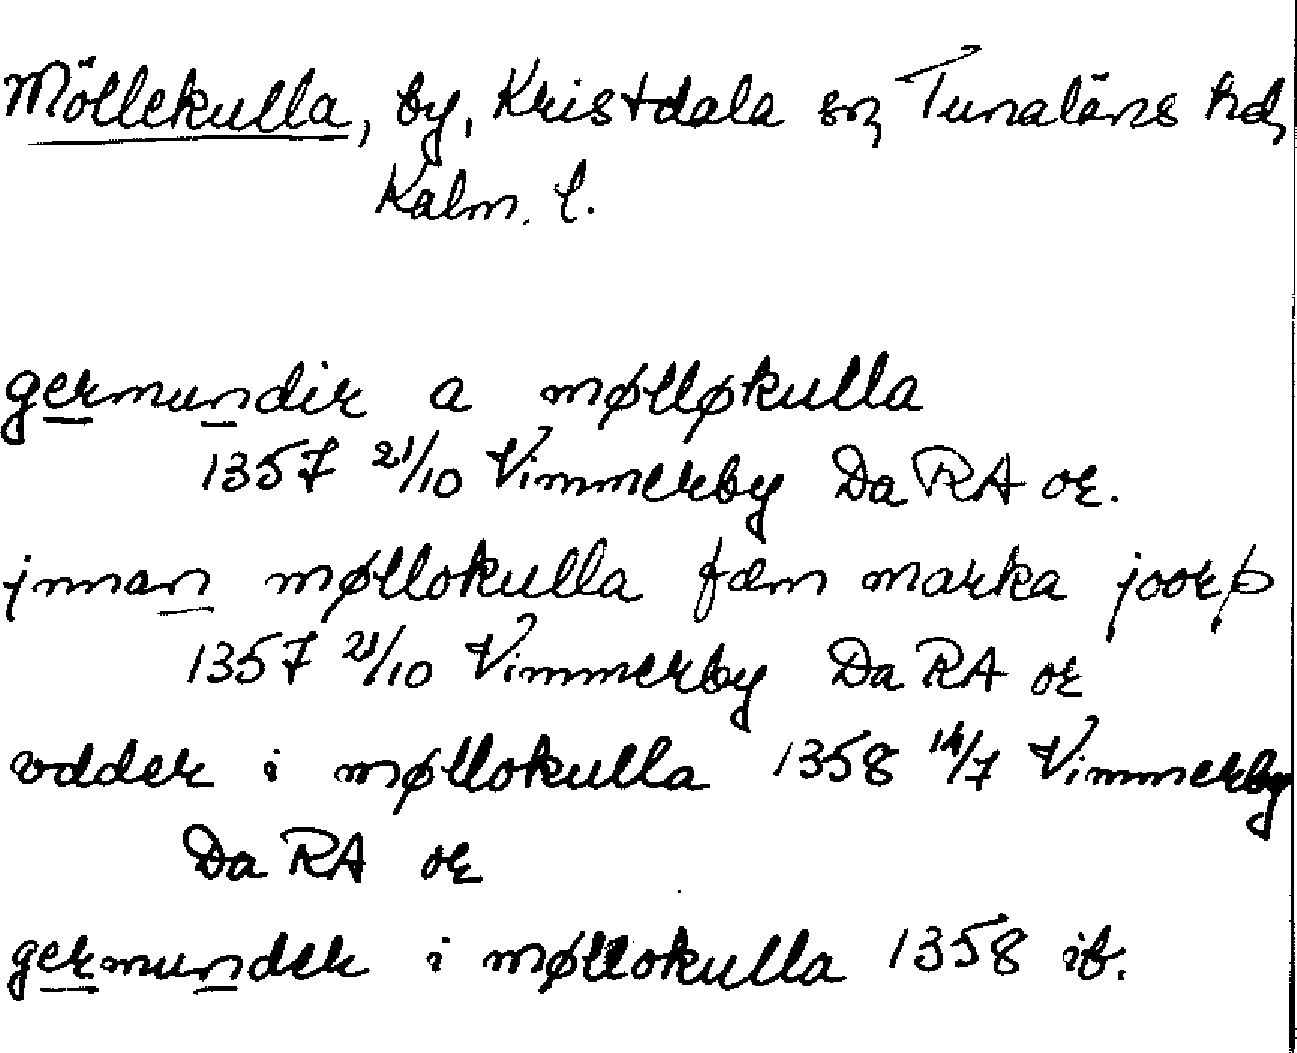 Möllekulla, by, Kristdala sn, Tunaläns hd,
Kalm. l.
germundir a mølløkulla
1357 21/10 Vimmerby Da RA or.
jnnan møllokulla fæm marka joorþ
1357 21/10 Vimmerby Da RA or
vdder i møllokulla 1358 14/7 Vimmerby
Da RA or
germunder i møllokulla 1358 ib.